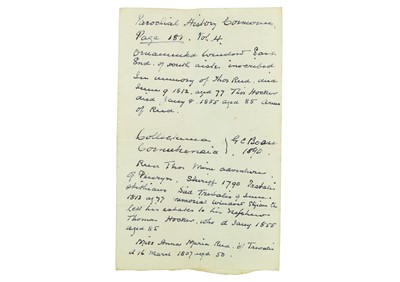 Parochial History Cornwall
Page 181. Vol. 4.
Ornamented window East
End. of south aisle inscribed
In memory of Thos Reed died
June 9 1812, aged 77 Thos Hocker
died Jany 8. 1855 aged 85
of Reed.
Collectanea } G C Boase
Cornubiensia } 1890
Reed Thos Mine adventurer
of Penryn. Sheriff 1790
Died 9 June
1812 aged 77 memorial window
left his estates to his Nephew
Thomas Hocker, who d Jany 1855
aged 85
Miss Anna Maria Reed, of
d 16 March 1807 aged 50.